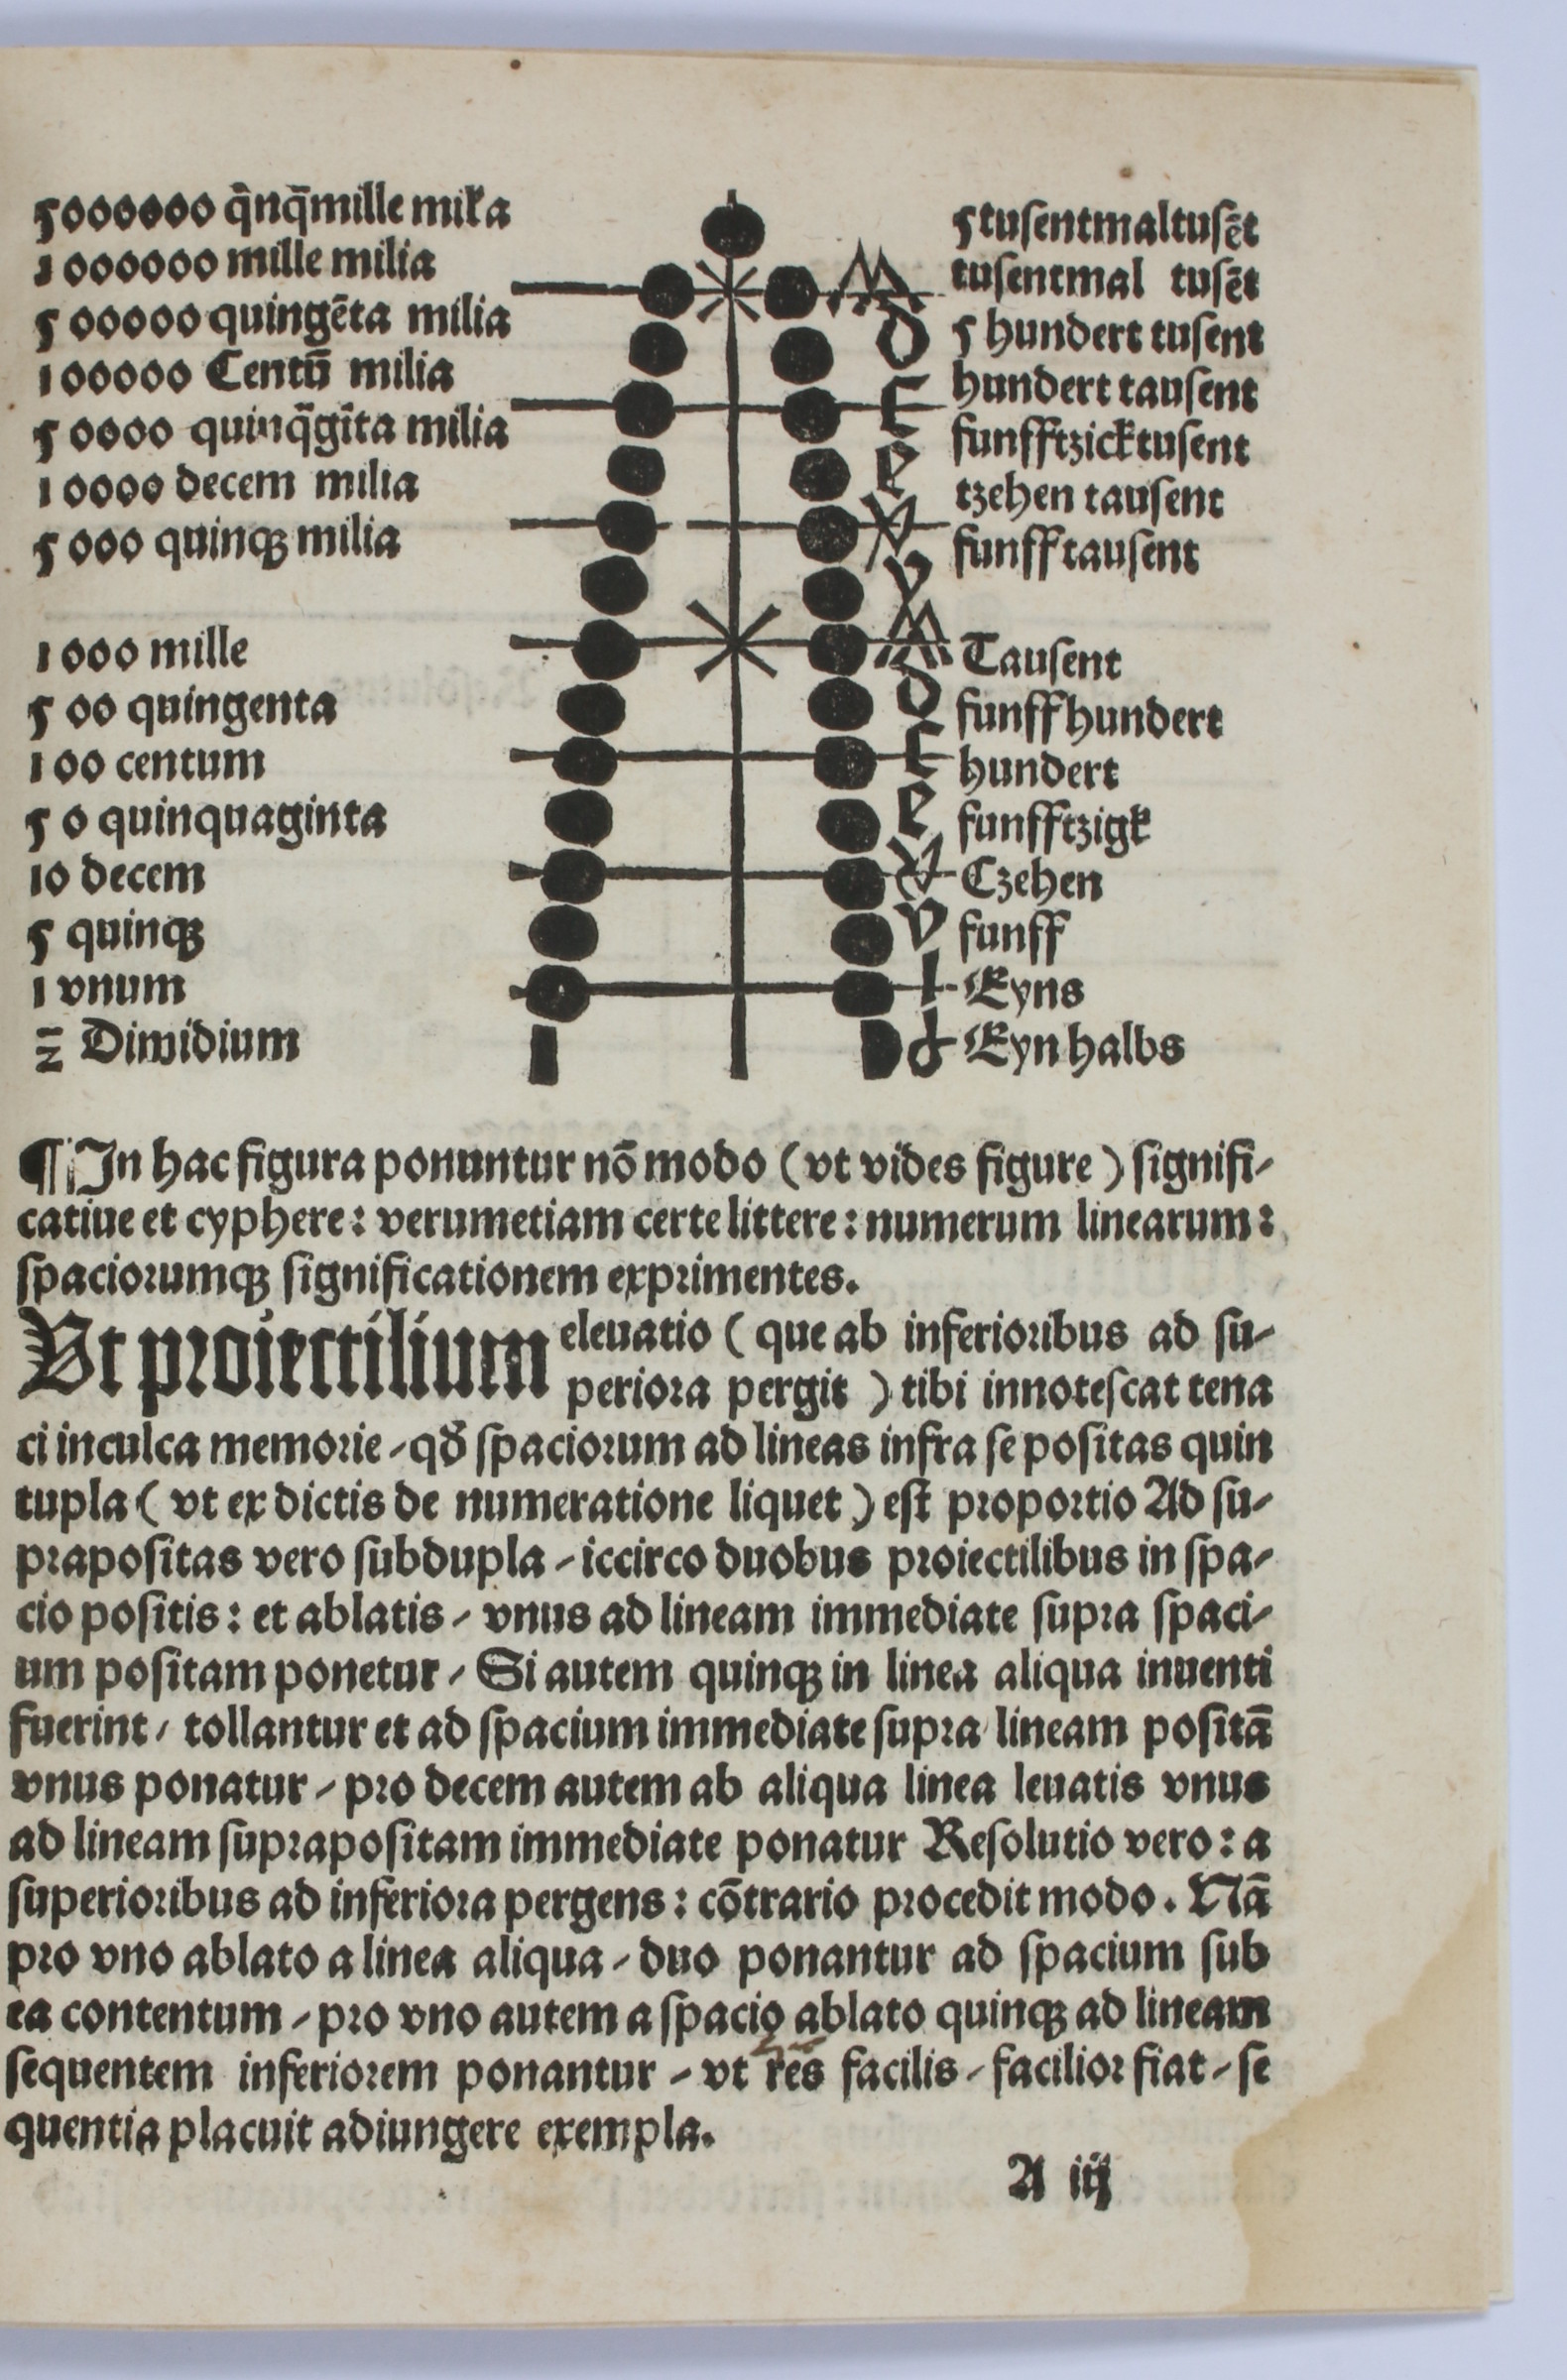 5000000 q̄nq̄mille mil̄a
1000000 mille milia
500000 quingēta milia
100000 Centū milia
50000 quinq̄gīta milia
10000 decem milia
5000 quinqꝫ milia
1000 mille
500 quingenta
100 centum
50 quinquaginta
10 decem
5 quinqꝫ
1 vnum
Dimidium
M
D
C
L
X
V
M
D
C
L
X
V
I
5tusentmaltusēt
tusentmal tusēt
5 hundert tusent
hundert tausent
funfftzicktusent
tzehen tausent
funfftausent
Tausent
funffhundert
hundert
funfftzigk
Czehen
funff
Eyns
Eyn halbs
¶ In hac figura ponuntur nō modo (vt vides figure) signifi⸗
catiue et cyphere: verumetiam certe littere: numerum linearum:
spaciorumqꝫ significationem exprimentes.
Vt proiectilium eleuatio (que ab inferioribus ad su⸗
periora pergit) tibi innotescat tena
ci inculca memorie/qđ spaciorum ad lineas infra se positas quin
tupla (vt ex dictis de numeratione liquet) est proportio Ad su⸗
prapositas vero subdupla/iccirco duobus proiectilibus in spa⸗
cio positis: et ablatis/vnus ad lineam immediate supra spaci⸗
um positam ponetur/Si autem quinqꝫ in linea aliqua inuenti
fuerint/tollantur et ad spacium immediate supra lineam positā
vnus ponatur/pro decem autem ab aliqua linea leuatis vnus
ad lineam suprapositam immediate ponatur Resolutio vero: a
superioribus ad inferiora pergens: cōtrario procedit modo. Nā
pro vno ablato a linea aliqua/duo ponantur ad spacium sub
ea contentum/pro vno autem a spacio ablato quinqꝫ ad lineam
sequentem inferiorem ponantur/vt res facilis/facilior fiat/se
quentia placuit adiungere exempla.
A iij